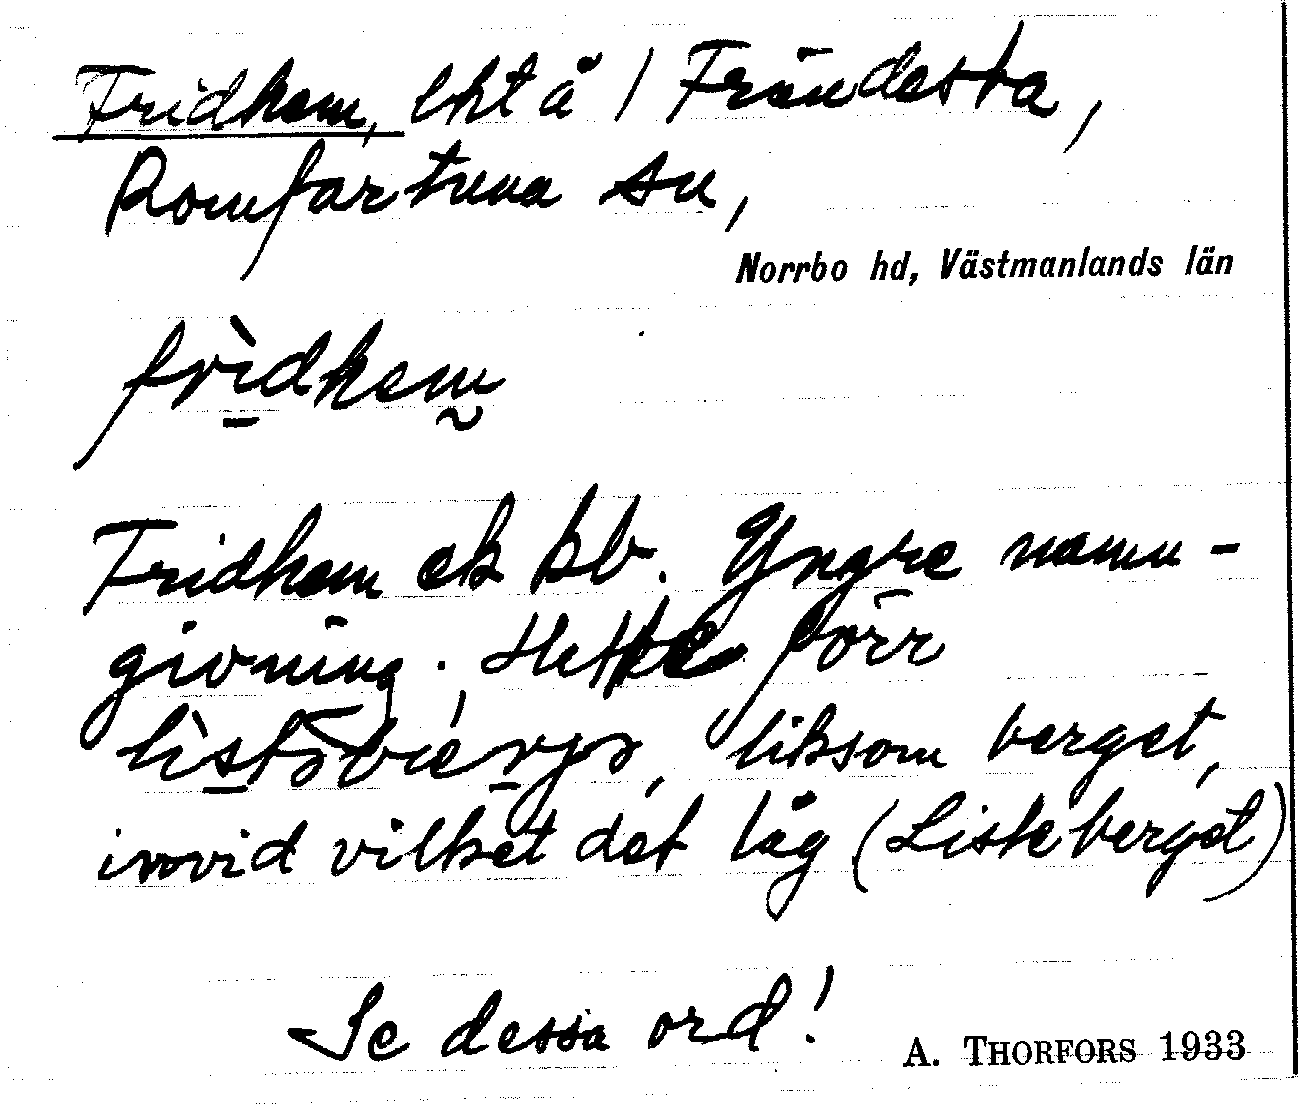 Fridhem, lht å 1 Frändesta,
Romfartuna sn,
Norrbo hd, Västmanlands län
frìdhem
Fridhem ek kb. Yngre namn-
givning. Hette förr
liksom berget,
invid vilket det låg (Listeberget)
Se dessa ord!
A. THORFORS 1933